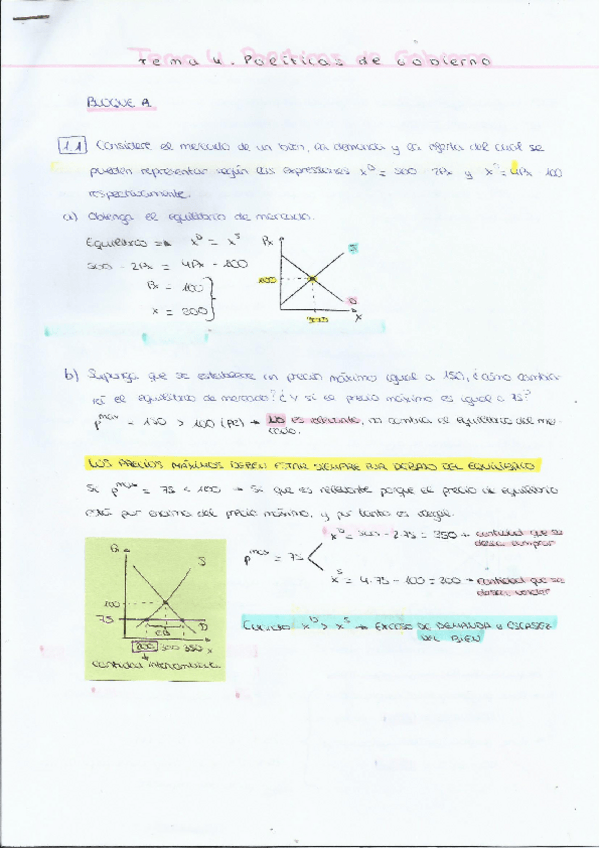 Tema 4. Políticas de Gobierno
BLOQUE A.
1.1 Considere el mercado de un bien, la demanda y la oferta del cual se
pueden representar según las expresiones x^D = 500 - 2Px y x^S = 4Px - 100
respectivamente.
a) Obtenga el equilibrio de mercado.
Equilibrio => x^D = x^S
500 - 2Px = 4Px - 100
Px = 100
x = 300
Px
S
100
D
300
x
b) Suponga que se establece un precio máximo igual a 150, ¿cómo cambia-
rá el equilibrio de mercado? ¿Y si el precio máximo es igual a 75?
p^max = 150 > 100 (PE) → No es relevante, no cambia el equilibrio del mer-
cado.
LOS PRECIOS MÁXIMOS DEBEN ESTAR SIEMPRE POR DEBAJO DEL EQUILIBRIO
Si p^max = 75 < 100 → Sí que es relevante porque el precio de equilibrio
está por encima del precio máximo, y por tanto es ilegal.
p^max = 75
x^D = 500 - 2·75 = 350 → cantidad que se
desea comprar
x^S = 4·75 - 100 = 200 → cantidad que se
desea vender
Cuando x^D > x^S → EXCESO DE DEMANDA o ESCASEZ
DEL BIEN
S
100
75
D
ED
200 300 350 x